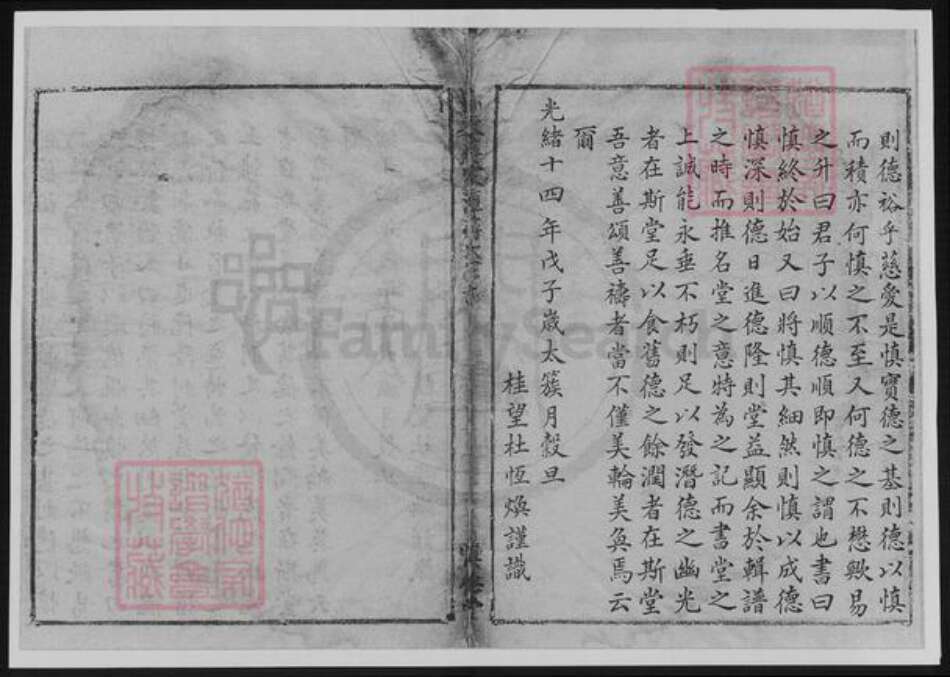 則德裕乎慈愛是慎實德之基則德以慎
而積亦何慎之不至又何德之不懋歟易
之升曰君子以順德順即慎之謂也書曰
慎終於始又曰將慎其細然則慎以成德
慎深則德日進德隆則堂益顯余於輯譜
之時而推名堂之意特為之記而書堂之
上誠能永垂不朽則足以發潛德之幽光
者在斯堂足以食舊德之餘潤者在斯堂
吾意善頌善禱者當不僅美輪美奐焉云
爾
光緒十四年戊子歲太簇月穀旦
桂望杜恆煥謹識
FamilySearch